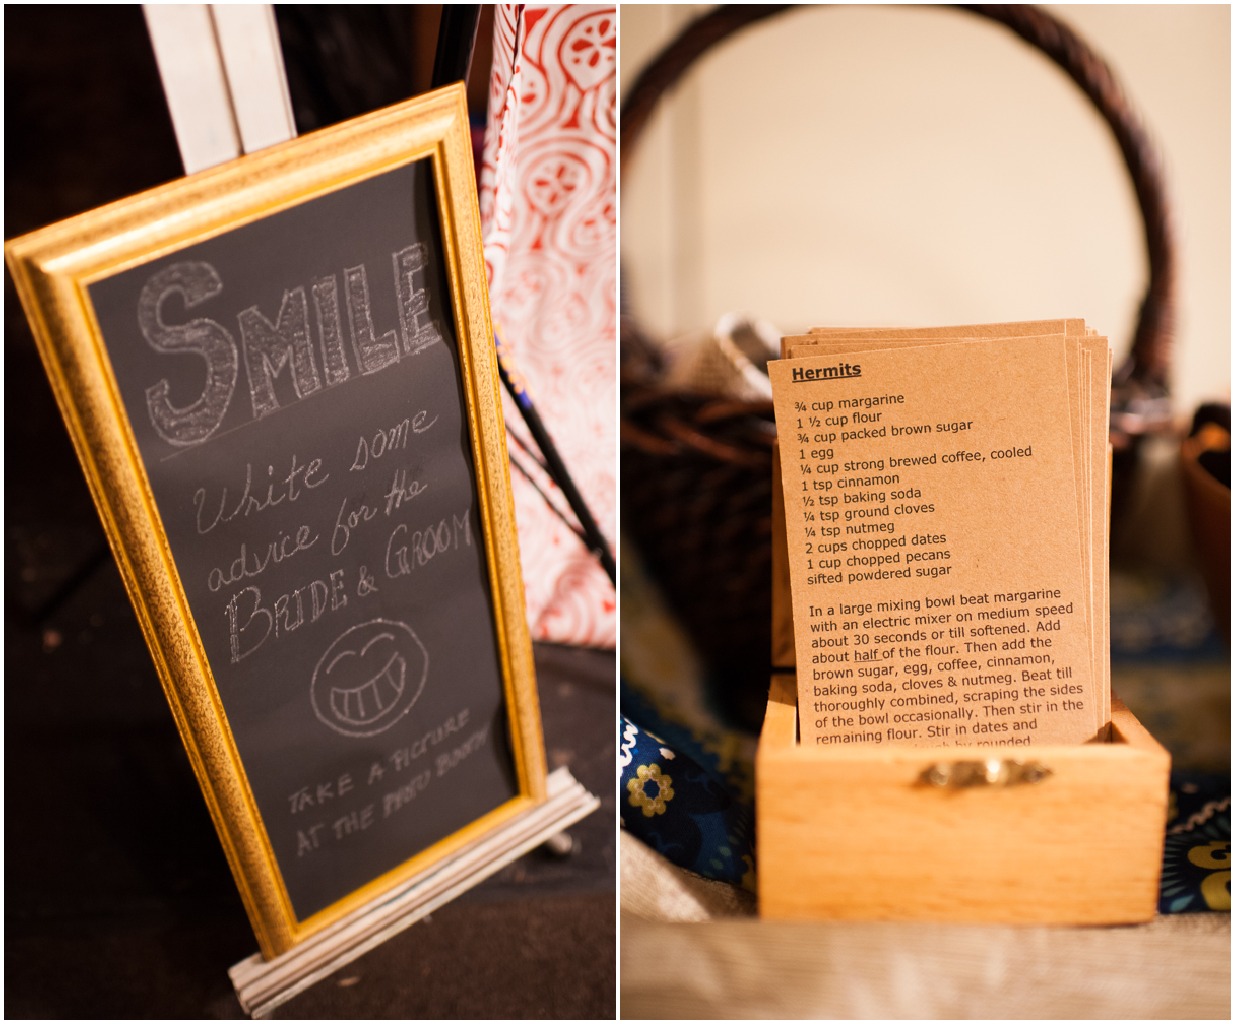 SMILE
Write some
advice for the
BRIDE & GROOM
TAKE A PICTURE
AT THE PHOTO BOOTH
Hermits
¾ cup margarine
1 ½ cup flour
¾ cup packed brown sugar
1 egg
¼ cup strong brewed coffee, cooled
1 tsp cinnamon
½ tsp baking soda
¼ tsp ground cloves
¼ tsp nutmeg
2 cups chopped dates
1 cup chopped pecans
sifted powdered sugar
In a large mixing bowl beat margarine
with an electric mixer on medium speed
about 30 seconds or till softened. Add
about half of the flour. Then add the
brown sugar, egg, coffee, cinnamon,
baking soda, cloves & nutmeg. Beat till
thoroughly combined, scraping the sides
of the bowl occasionally. Then stir in the
remaining flour. Stir in dates and
by rounded